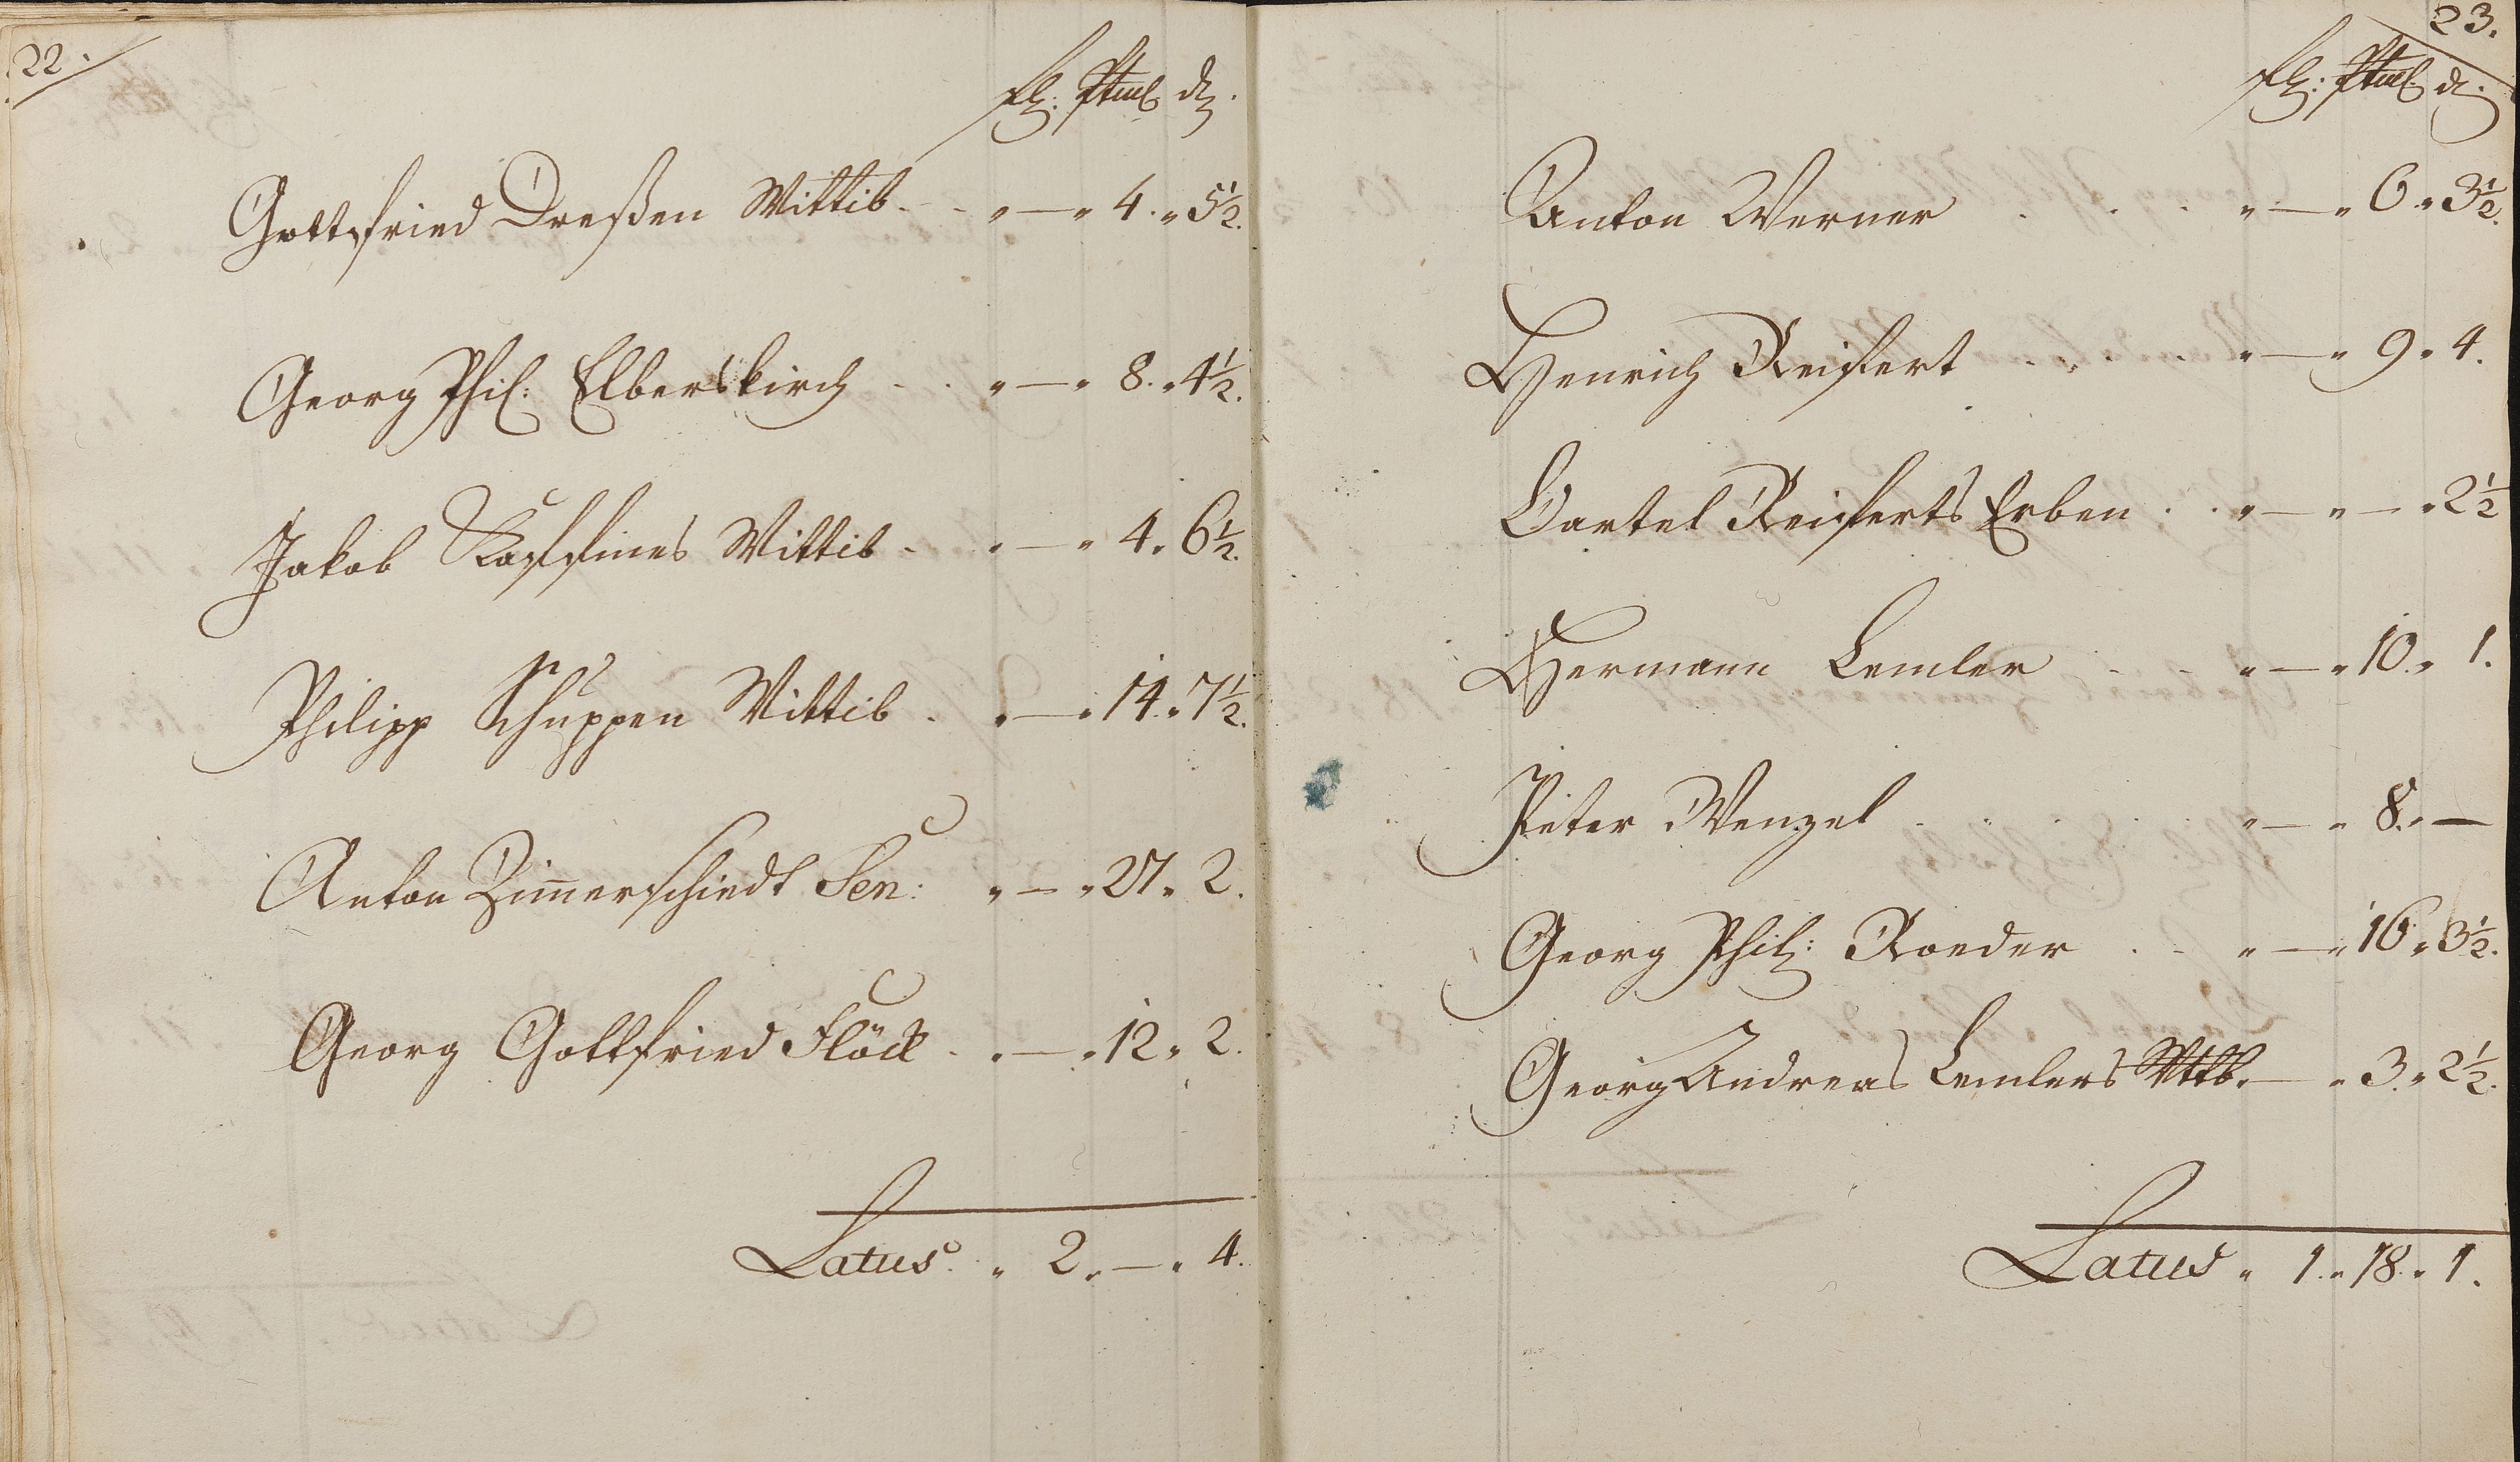 22.
fl: Stuel d.
Gottfried Dreßen Wittib - - " — " 4. " 5½.
Georg Phil: Elberskirch - - " — " 8. " 4½.
Jakob Wittib - " — " 4. 6½.
Philipp Schuppen Wittib . " — " 14. " 7½.
Anton Zim̄erschiedt Sen: " — " 27 " 2.
Georg Gottfried Flöck - " — " 12 " 2.
Latus " 2. " — " 4.
23.
fl: d.
Anton Werner . . . " — " 6 " 3½.
Henrich Reifert . . . " — " 9 " 4.
Bartel Reiferts Erben . . " — " — " 2½
Hermann Lemler - - " — " 10. " 1.
Peter Wenzel . . . . " — " 8. " —
Georg Phil: Roeder . - " — " 16 " 3½.
Georg Andreas Lemlers Wttb. — " 3. " 2½.
Latus " 1. " 18. " 1.